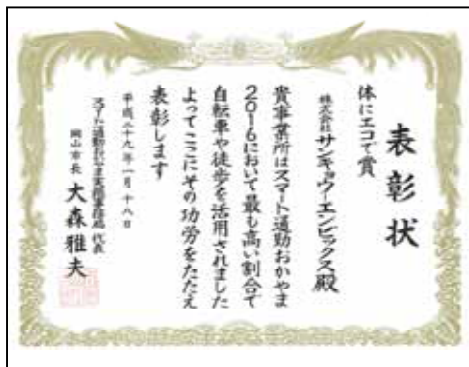 表彰状
体にエコで賞
株式会社サンキョウ-エンビックス殿
貴事業所はスマート通勤おかやま
2016において最も高い割合で
自転車や徒歩を活用されました
よってここにその功労をたたえ
表彰します
平成二十九年一月十八日
スマート通勤おかやま実行委員会 代表
岡山市長 大森雅夫